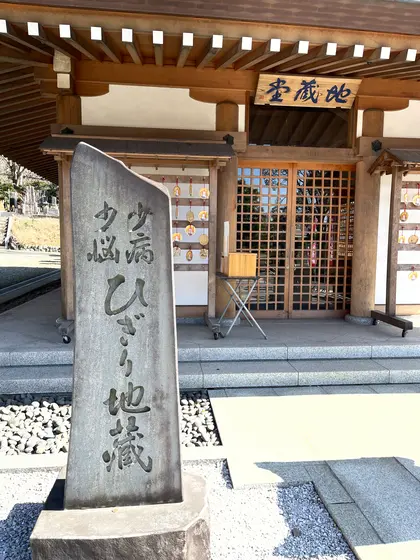 地蔵堂
少病
少悩
ひざり地蔵